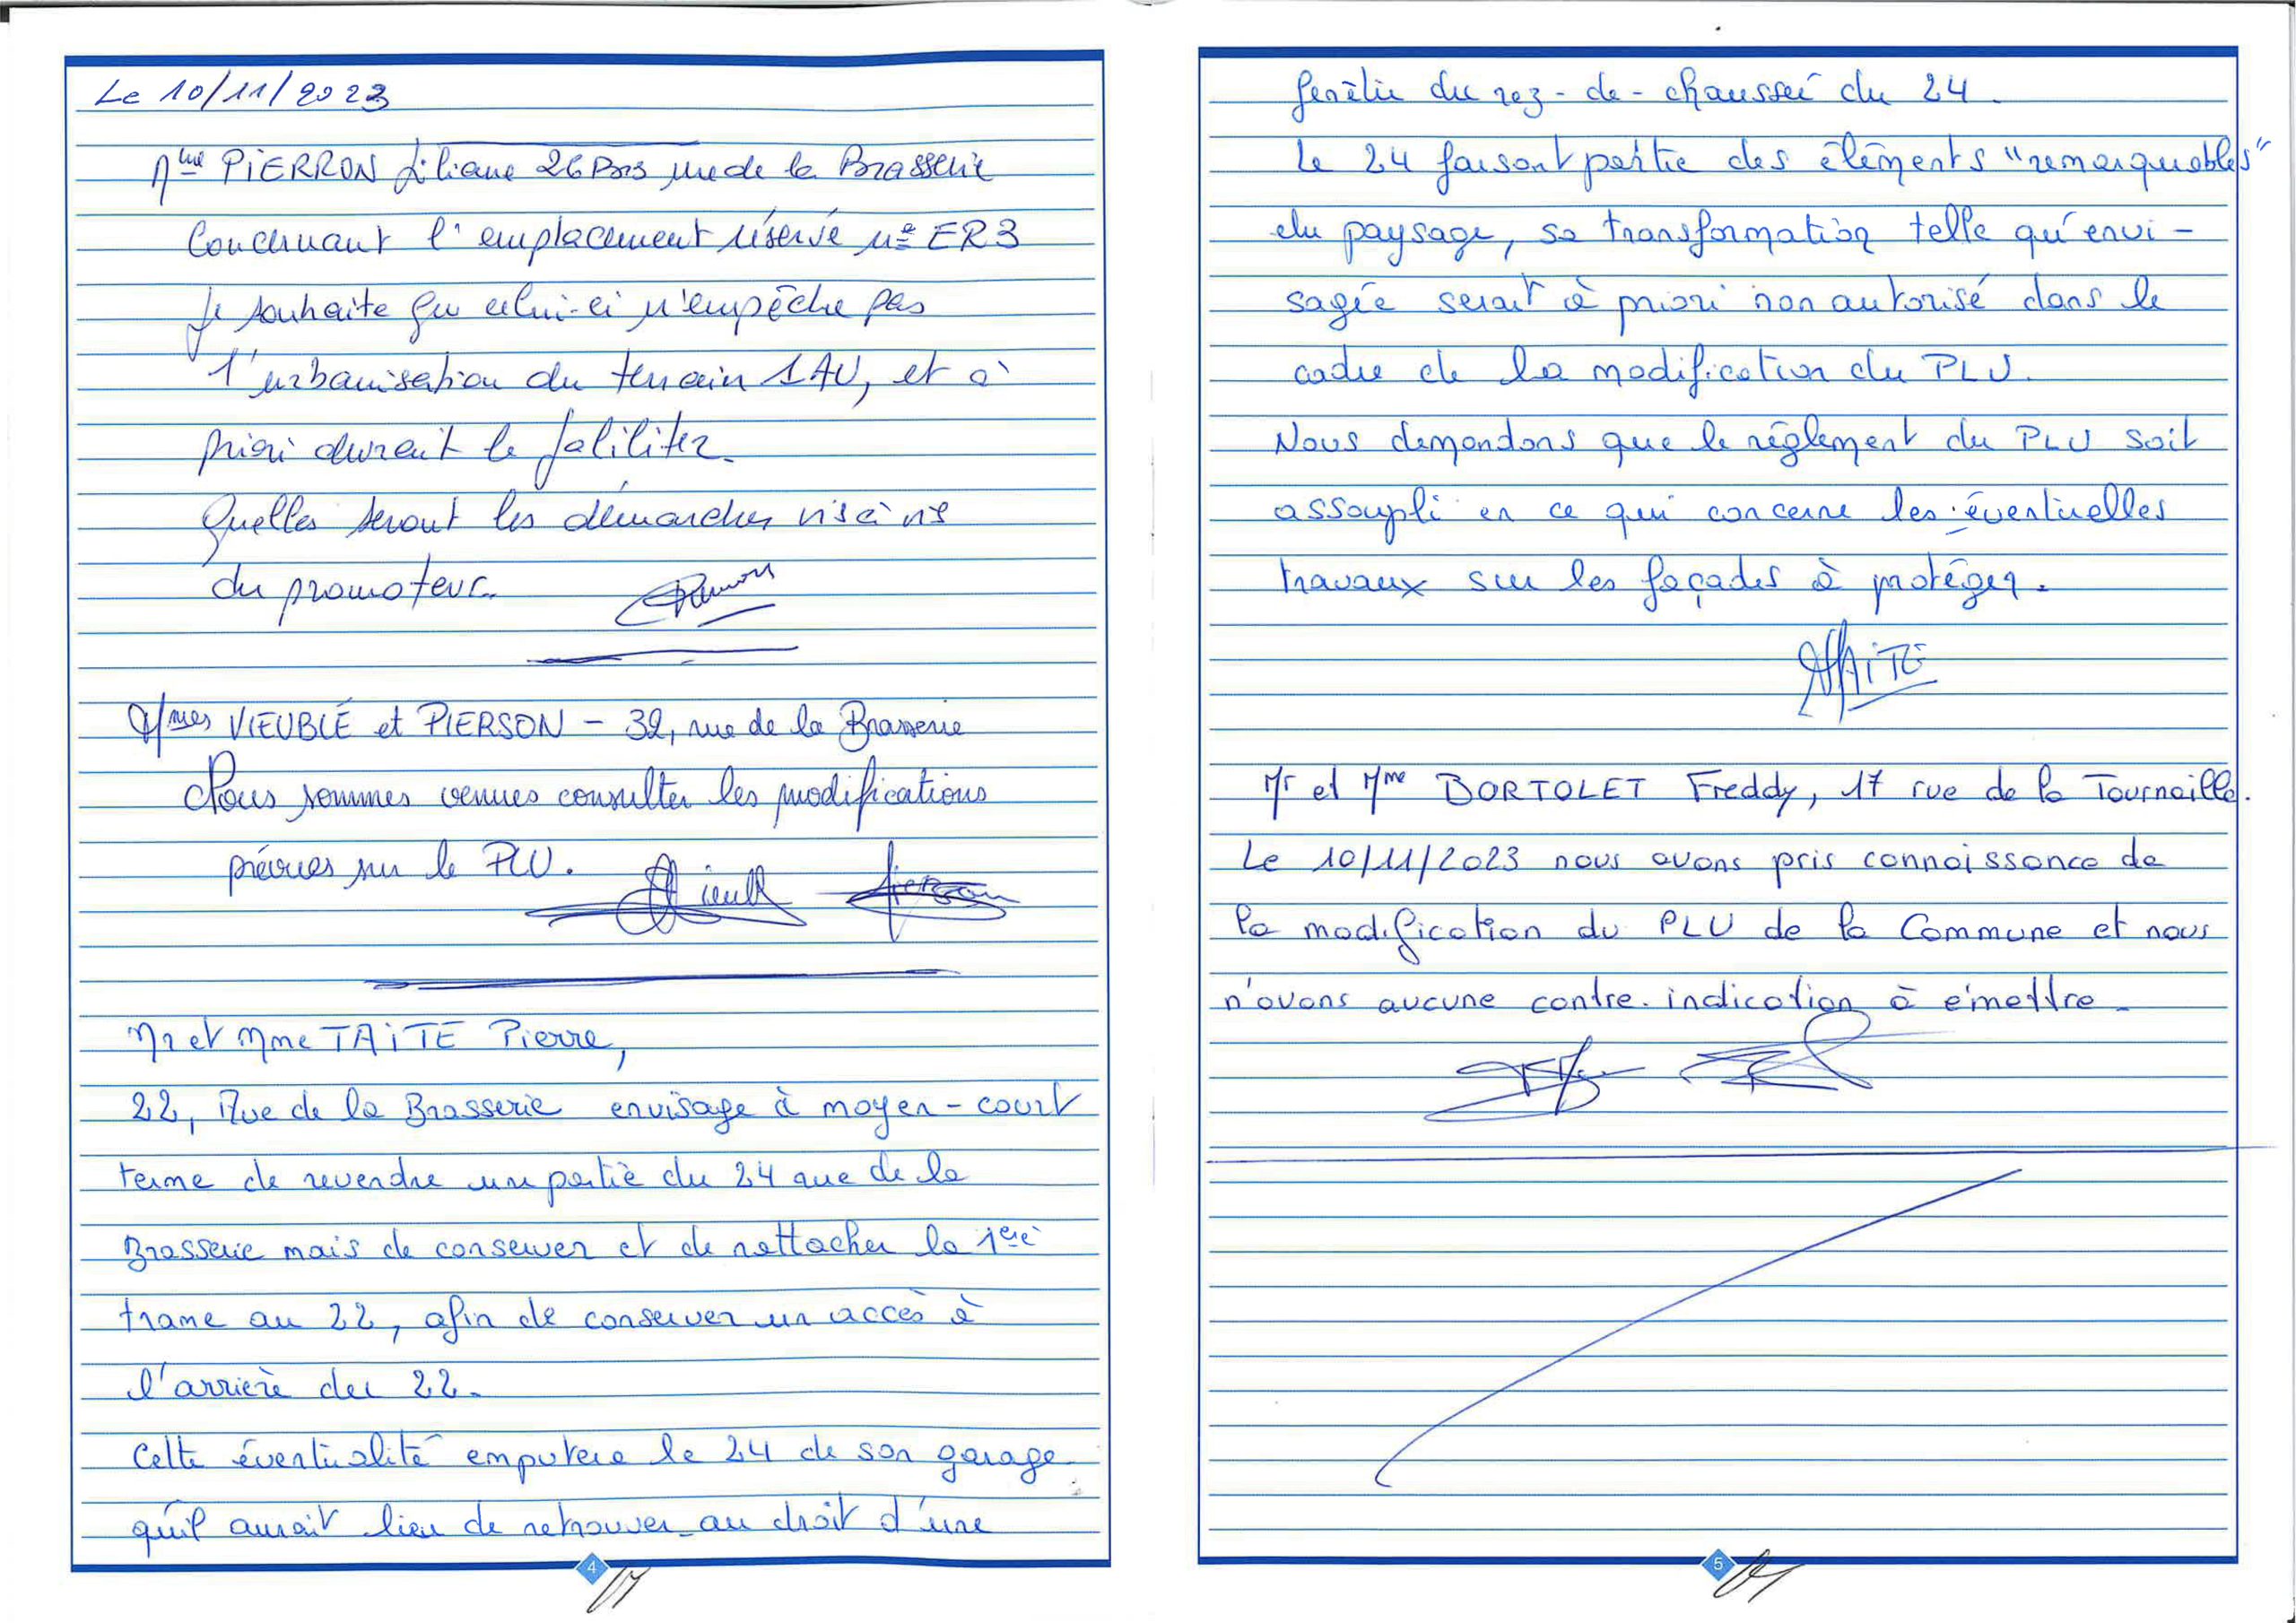 Le 10/11/2023
Mme PiERRON Liliane 26 Bis rue de la Brasserie
Concernant l'emplacement réservé n° ER3
je souhaite que celui-ci n'empêche pas
l'urbanisation du terrain 1AU, et à
priori devrait le faliliter.
Quelles seront les démarches vis à vis
du promoteur.
Mmes VIEUBLÉ et PIERSON - 32, rue de la Brasserie
Nous sommes venues consulter les modifications
prévues sur le PLU.
Mr et Mme TAiTE Pierre,
22, Rue de la Brasserie envisage à moyen-court
terme de revendre une partie du 24 rue de la
Brasserie mais de conserver et de rattacher la 1ère
trame au 22, afin de conserver un accès à
l'arrière du 22.
Cette éventualité emputera le 24 de son garage
qu'il aurait lieu de retrouver au droit d'une
4
fenêtre du rez-de-chaussée du 24.
Le 24 faisant partie des éléments "remarquables"
du paysage, sa transformation telle qu'envi-
sagée serait à priori non autorisé dans le
cadre de la modification du PLU.
Nous demandons que le règlement du PLU soit
assoupli en ce qui concerne les éventuelles
travaux sur les façades à protéger.
TAiTE
Mr et Mme BORTOLET Freddy, 17 rue de la Tournaille.
Le 10/11/2023 nous avons pris connaissance de
la modification du PLU de la Commune et nous
n'avons aucune contre-indication à émettre.
5